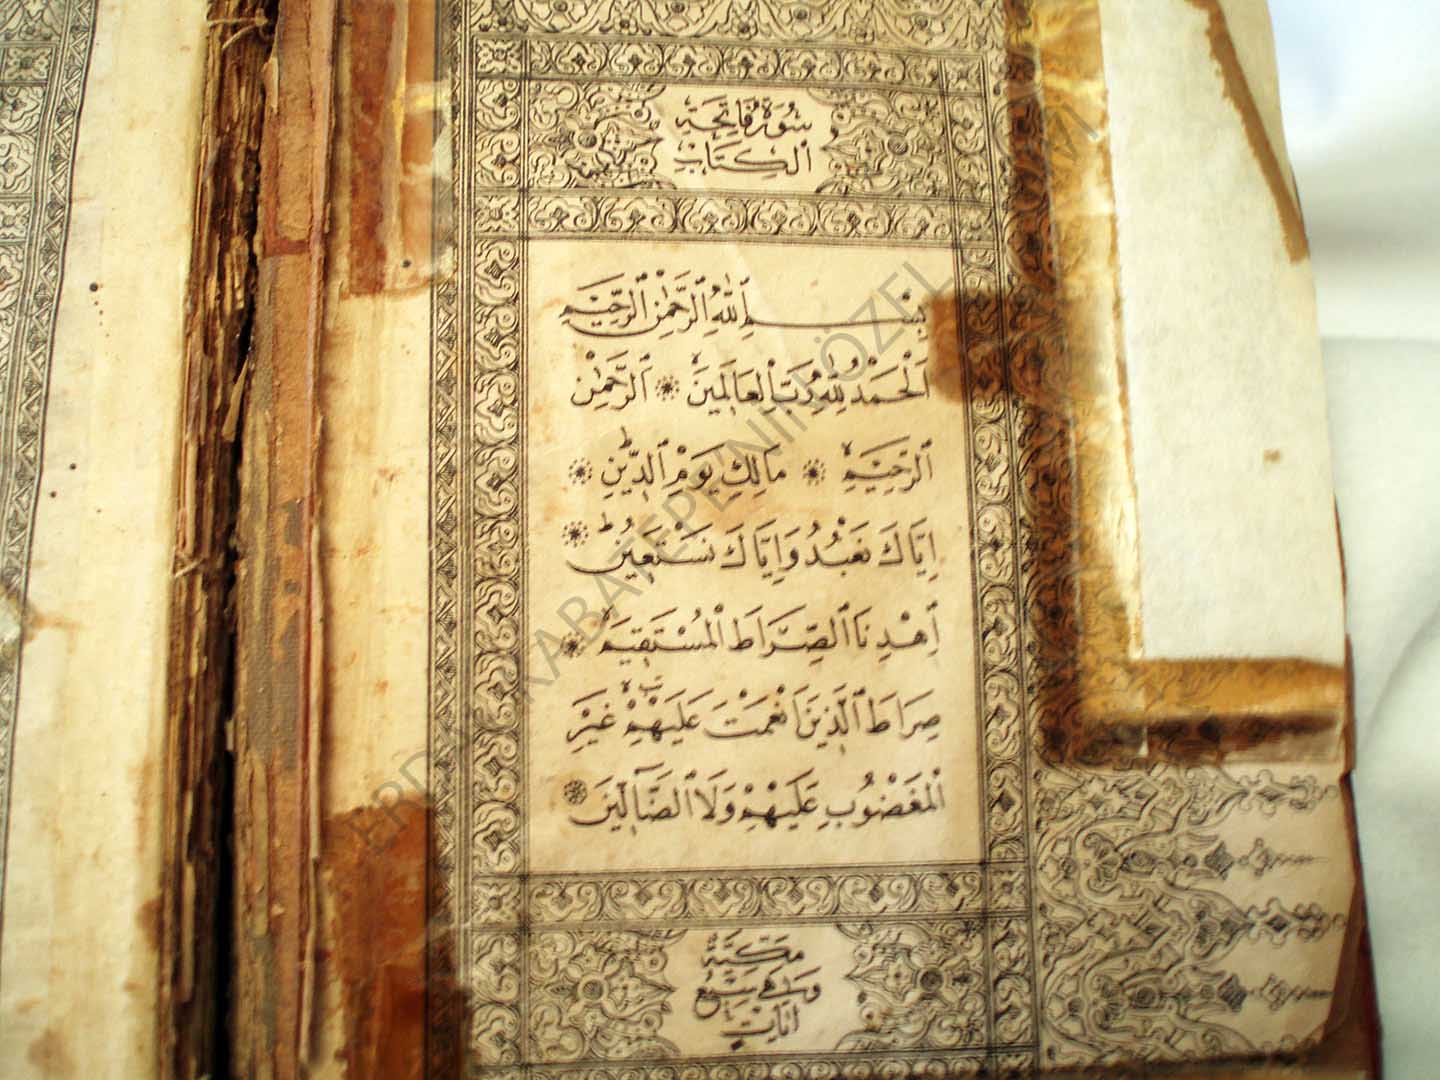 سُورَةُ فَاتِحَةِ
الْكِتَابِ
بِسْمِ اللّٰهِ الرَّحْمٰنِ الرَّحِيمِ
اَلْحَمْدُ لِلّٰهِ رَبِّ الْعَالَمِينَ ۞ الرَّحْمٰنِ
الرَّحِيمِ ۞ مَالِكِ يَوْمِ الدِّينِ ۞
اِيَّاكَ نَعْبُدُ وَاِيَّاكَ نَسْتَعِينُ ۞
اِهْدِنَا الصِّرَاطَ الْمُسْتَقِيمَ ۞
صِرَاطَ الَّذِينَ اَنْعَمْتَ عَلَيْهِمْ غَيْرِ
الْمَغْضُوبِ عَلَيْهِمْ وَلَا الضَّٓالِّينَ ۞
مَكِّيَّةٌ
وَهِيَ سَبْعُ
اٰيَاتٍ